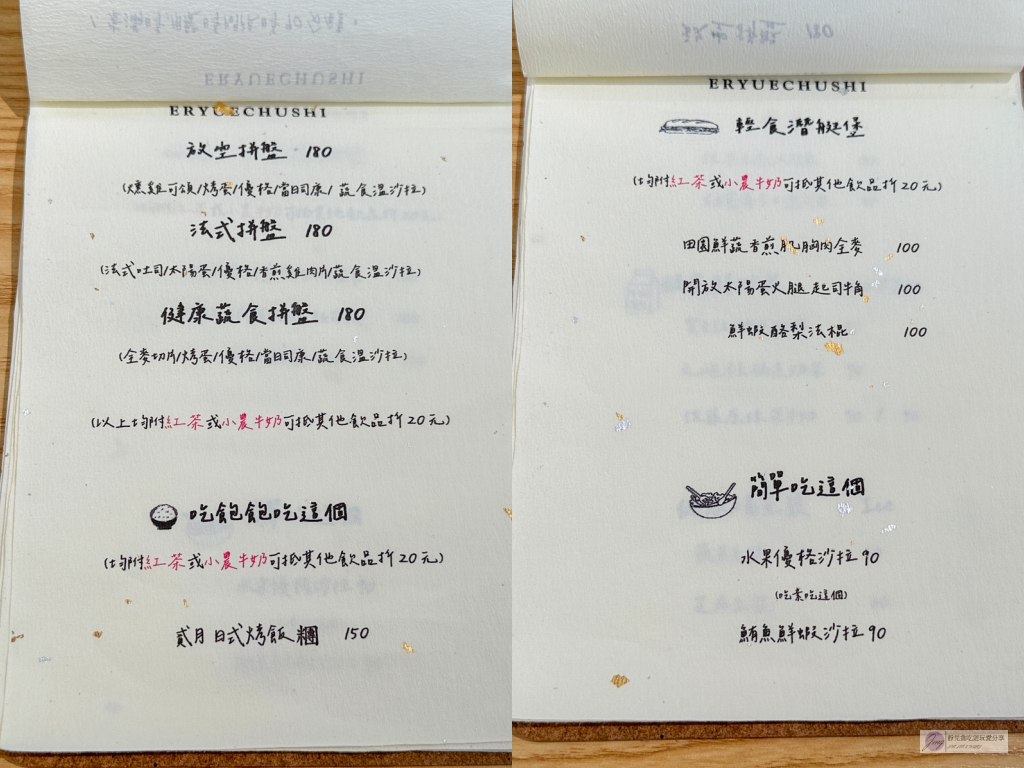 ERYUECHUSHI
放空拼盤 180
(燻雞可頌/烤蛋/優格/當日司康/蔬食溫沙拉)
法式拼盤 180
(法式吐司/太陽蛋/優格/香煎雞肉片/蔬食溫沙拉)
健康蔬食拼盤 180
(全麥切片/烤蛋/優格/當日司康/蔬食溫沙拉)
(以上均附紅茶或小農牛奶可抵其他飲品折20元)
吃飽飽吃這個
(均附紅茶或小農牛奶可抵其他飲品折20元)
貳月日式烤飯糰 150
ERYUECHUSHI
輕食潛艇堡
(均附紅茶或小農牛奶可抵其他飲品折20元)
田園鮮蔬香煎肌胸肉全麥 100
開放太陽蛋火腿起司牛角 100
鮮蝦酪梨法棍 100
簡單吃這個
水果優格沙拉 90
(吃素吃這個)
鮪魚鮮蝦沙拉 90